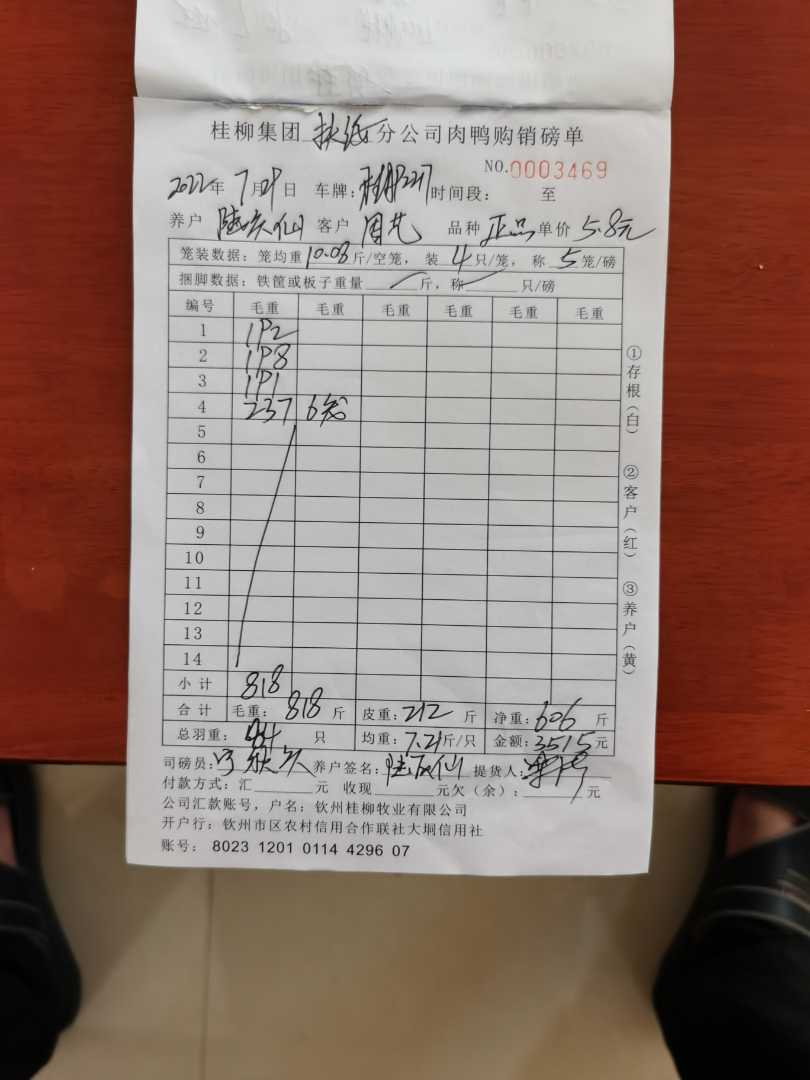 桂柳集团扶绥分公司肉鸭购销磅单
NO.0003469
2022年7月29日 车牌: 时间段: 至
养户 客户 品种 正品 单价 5.8元
笼装数据: 笼均重10.08斤/空笼, 装4只/笼, 称5笼/磅
捆脚数据: 铁筐或板子重量 斤, 称 只/磅
编号 毛重 毛重 毛重 毛重 毛重 毛重
1 192
2 198
3 191
4 237 6笼
5
6
7
8
9
10
11
12
13
14
小计 818
合计 毛重: 818 斤 皮重: 212 斤 净重: 606 斤
总羽重: 84 只 均重: 7.21斤/只 金额: 3515元
司磅员: 养户签名: 提货人:
付款方式: 汇 元 收现 元欠(余): 元
公司汇款账号, 户名: 钦州桂柳牧业有限公司
开户行: 钦州市区农村信用合作联社大垌信用社
账号: 8023 1201 0114 4296 07
①存根(白)
②客户(红)
③养户(黄)